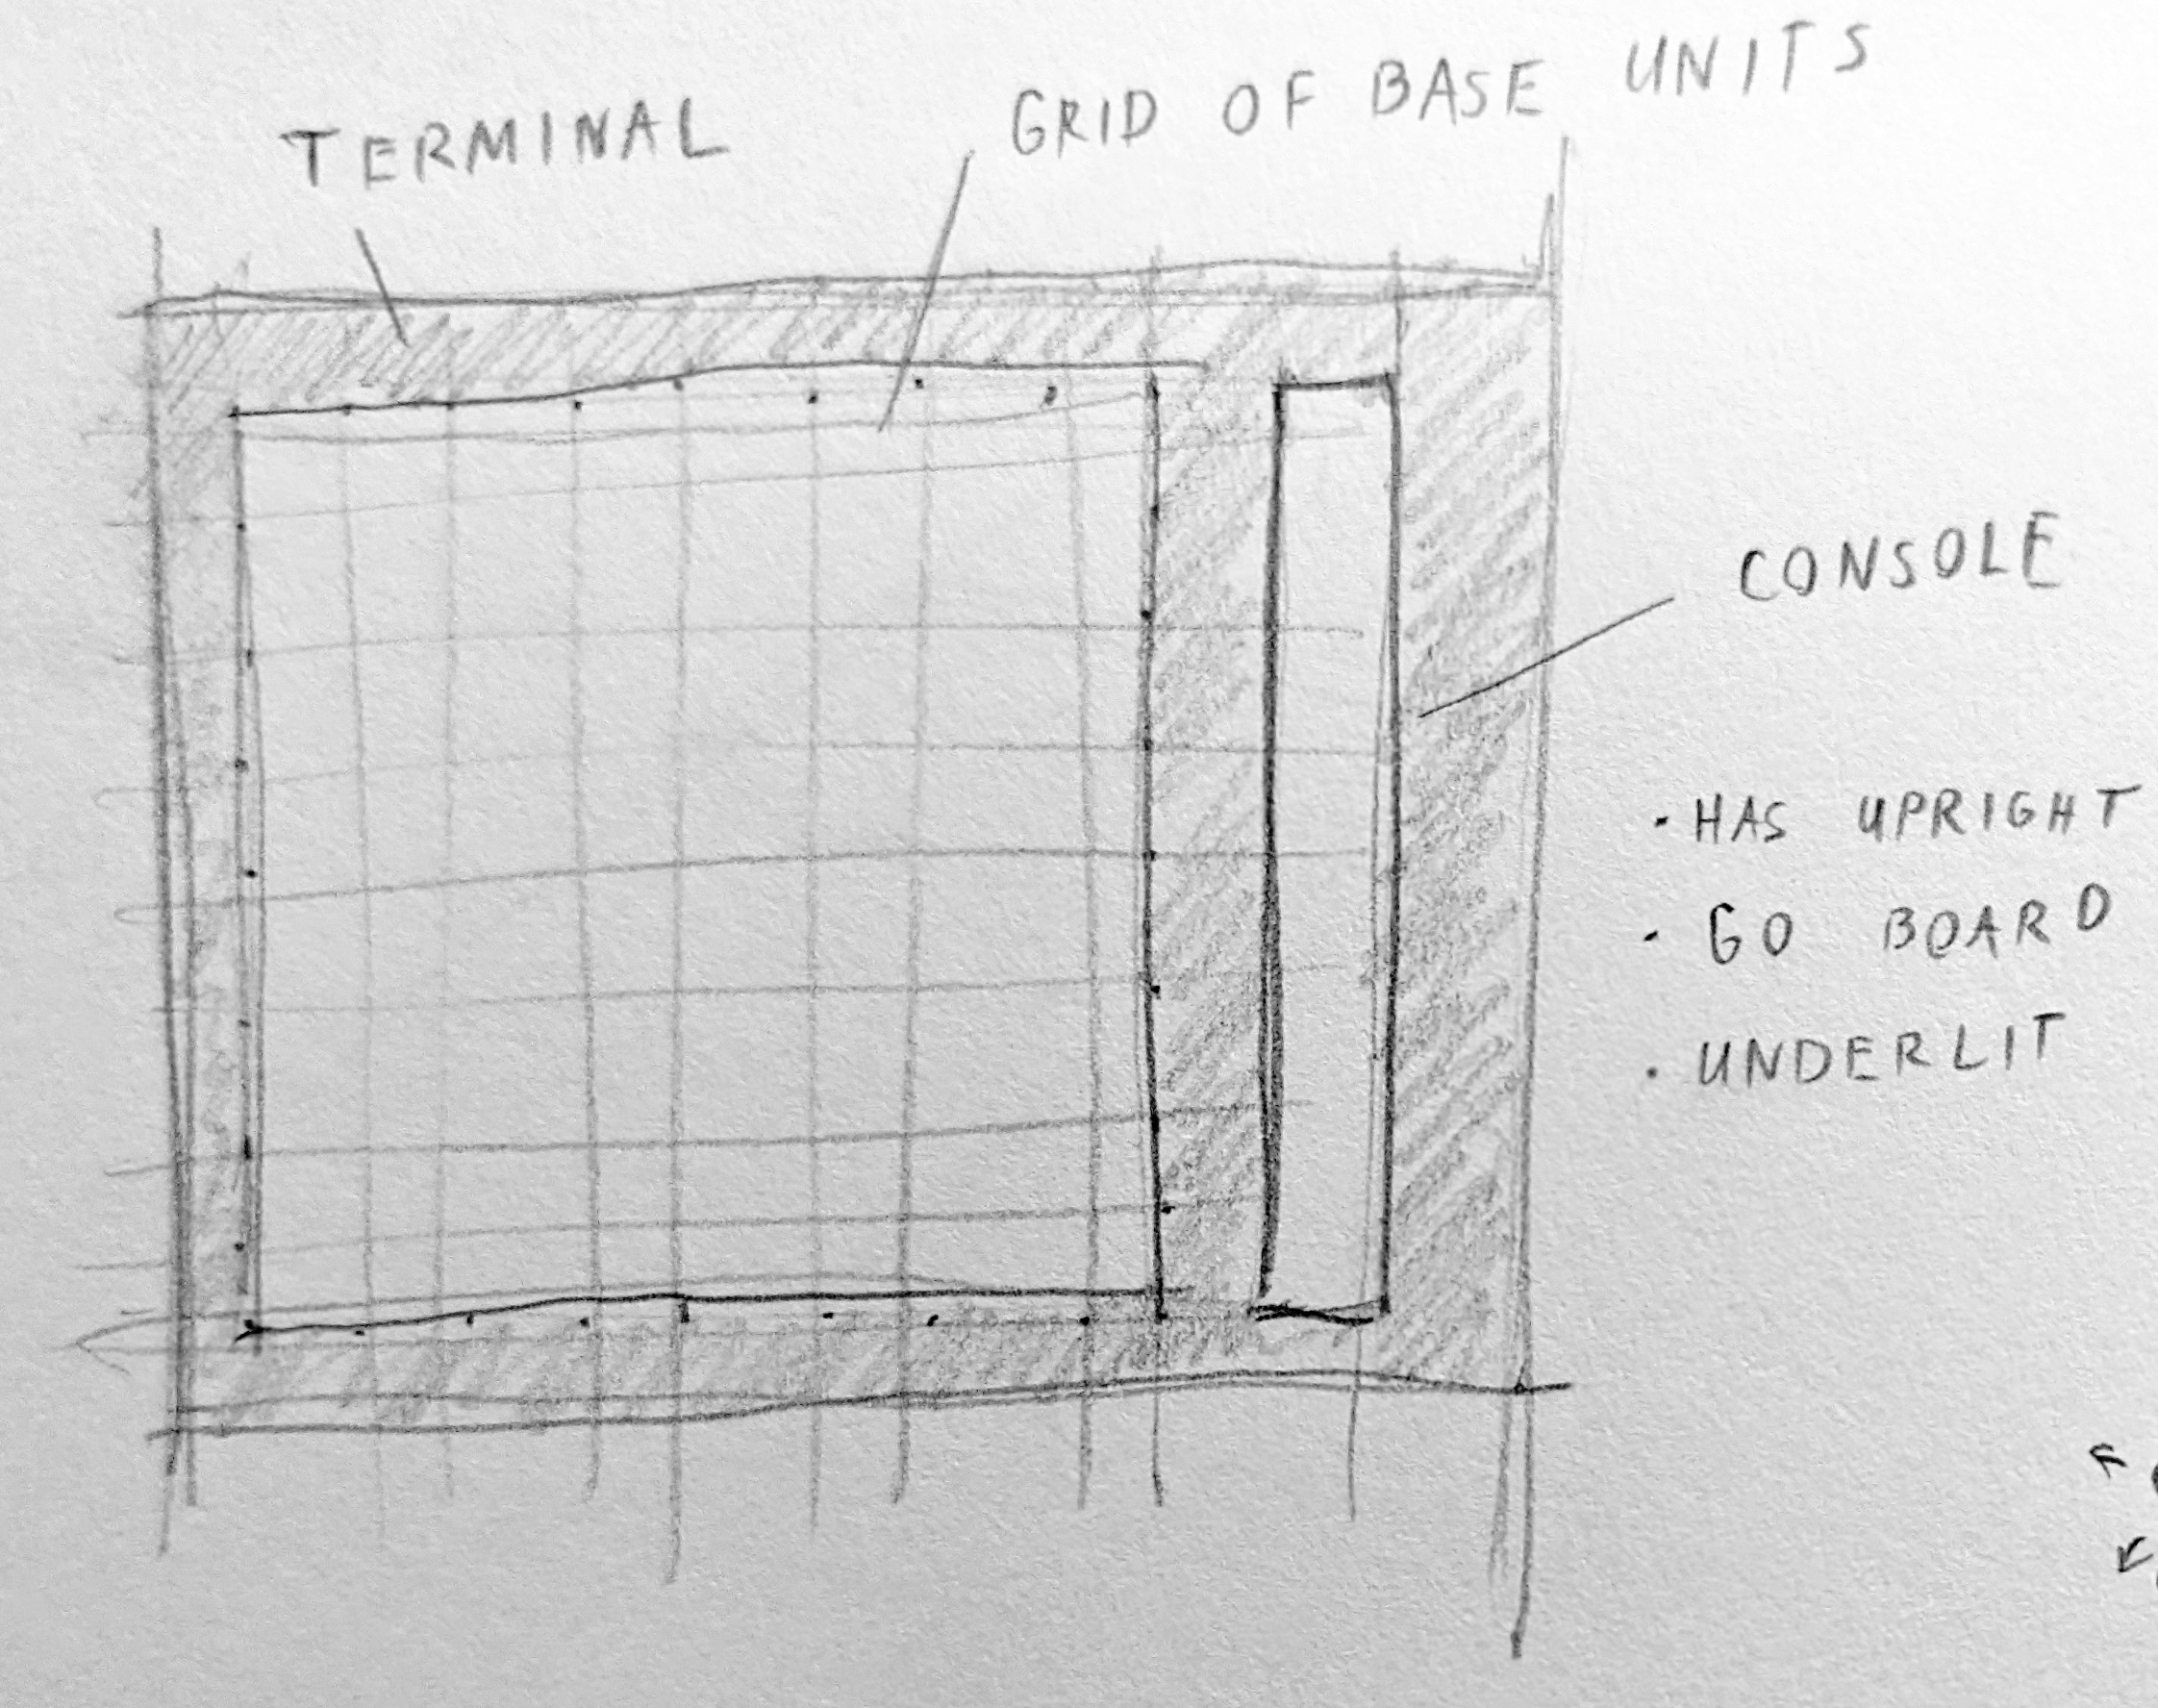 TERMINAL
GRID OF BASE UNITS
CONSOLE
· HAS UPRIGHT
· GO BOARD
· UNDERLIT